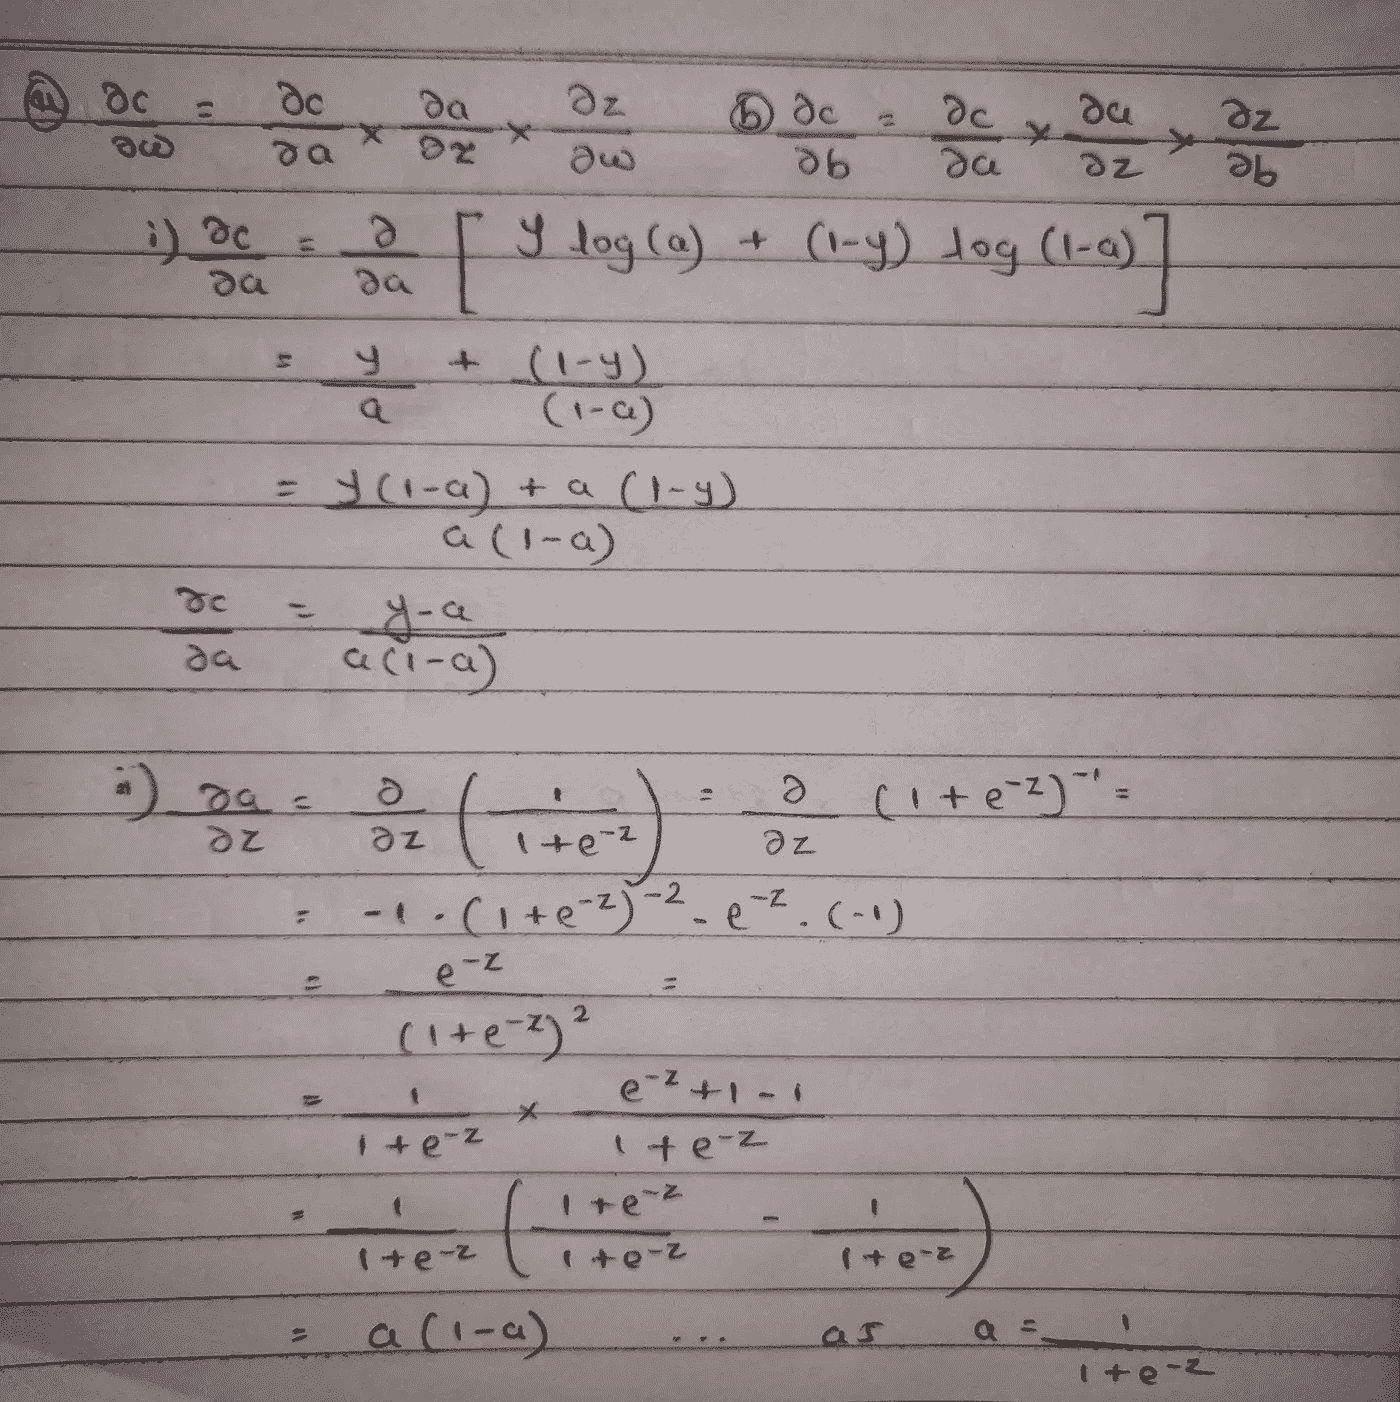 (a) ∂c/∂w = ∂c/∂a × ∂a/∂z × ∂z/∂w (b) ∂c/∂b = ∂c/∂a × ∂a/∂z × ∂z/∂b
i) ∂c/∂a = ∂/∂a [ y log(a) + (1-y) log (1-a) ]
= y/a + (1-y)/(1-a)
= (y(1-a) + a (1-y))/(a(1-a))
∂c/∂a = (y-a)/(a(1-a))
ii) ∂a/∂z = ∂/∂z (1/(1+e^-z)) = ∂/∂z (1+e^-z)^-1 =
= -1 . (1+e^-z)^-2 . e^-z . (-1)
= e^-z/(1+e^-z)^2 =
= 1/(1+e^-z) × (e^-z+1-1)/(1+e^-z)
= 1/(1+e^-z) ((1+e^-z)/(1+e^-z) - 1/(1+e^-z))
= a(1-a) ... as a = 1/(1+e^-z)